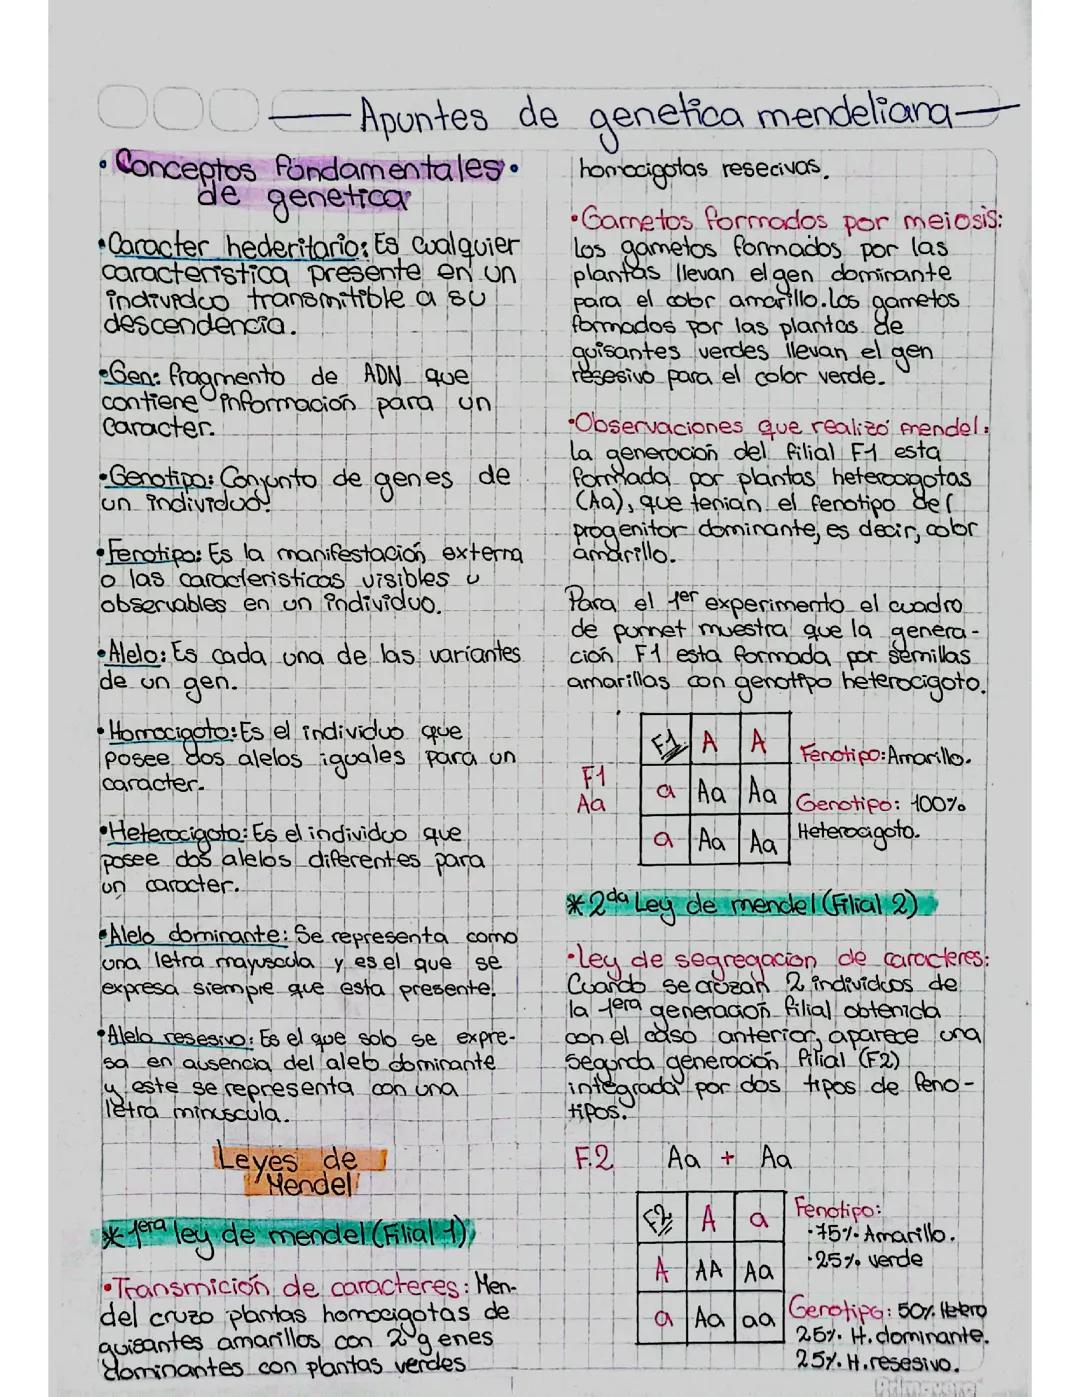 Apuntes de genetica mendeliana
• Conceptos fundamentales •
de genetica
• Caracter hederitario: Es cualquier
caracteristica presente en un
individuo transmitible a su
descendencia.
• Gen: fragmento de ADN que
contiene información para un
Caracter.
• Genotipo: Conjunto de genes de
un individuo.
• Fenotipo: Es la manifestación externa
o las caracteristicas visibles u
observables en un individuo.
• Alelo: Es cada una de las variantes
de un gen.
• Homocigoto: Es el individuo que
posee dos alelos iguales para un
caracter.
• Heterocigoto: Es el individuo que
posee dos alelos diferentes para
un caracter.
• Alelo dominante: Se representa como
una letra mayuscula y es el que se
expresa siempre que esta presente.
• Alelo resesivo: Es el que solo se expre-
sa en ausencia del alelo dominante
y este se representa con una
letra minuscula.
Leyes de
Mendel
* 1era ley de mendel (Filial 1)
• Transmición de caracteres: Men-
del cruzo plantas homocigotas de
guisantes amarillos con 2 genes
dominantes con plantas verdes
homocigotas resecivas.
• Gametos formados por meiosis:
Los gametos formados por las
plantas llevan el gen dominante
para el color amarillo. Los gametos
formados por las plantas de
guisantes verdes llevan el gen
resesivo para el color verde.
• Observaciones que realizó mendel:
La generación del filial F1 esta
formada por plantas heterocigotas
(Aa), que tenian el fenotipo del
progenitor dominante, es decir, color
amarillo.
Para el 1er experimento el cuadro
de punnet muestra que la genera-
ción F1 esta formada por semillas
amarillas con genotipo heterocigoto.
F1
Aa
F1 A A
a Aa Aa
a Aa Aa
Fenotipo: Amarillo.
Genotipo: 100%
Heterocigoto.
* 2da Ley de mendel (Filial 2)
• Ley de segregacion de caracteres:
Cuando se cruzan 2 individuos de
la 1era generación filial obtenida
con el caso anterior, aparece una
segunda generación filial (F2)
integrada por dos tipos de feno-
tipos.
F.2 Aa + Aa
F2 A a
A AA Aa
a Aa aa
Fenotipo:
• 75% Amarillo.
• 25% verde
Genotipo: 50% Hetero
25% H. dominante.
25% H. resesivo.
Primavera